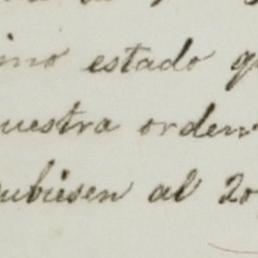 estado
uestra orden
ubiesen al 20